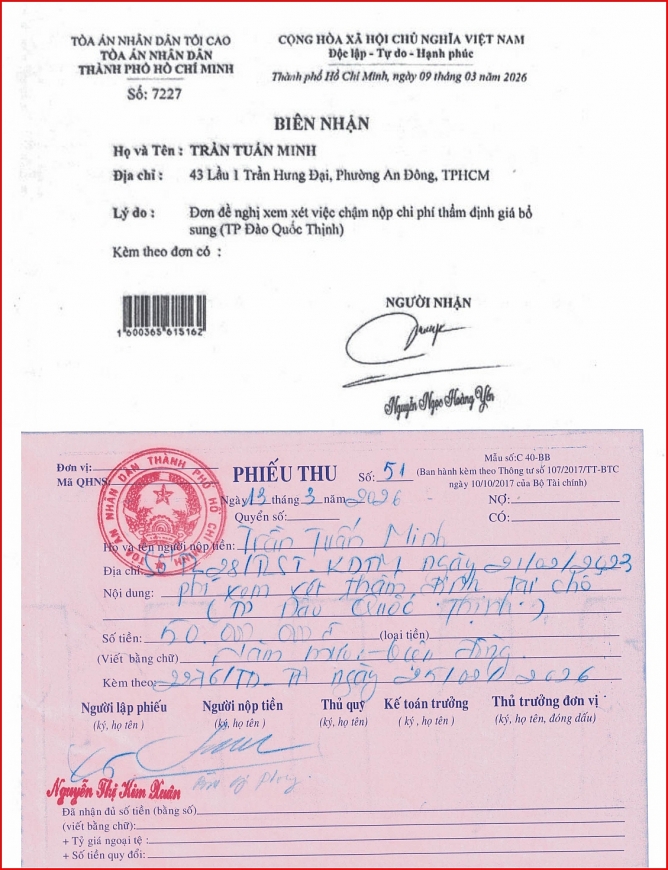 TÒA ÁN NHÂN DÂN TỐI CAO
TÒA ÁN NHÂN DÂN
THÀNH PHỐ HỒ CHÍ MINH
Số: 7227
CỘNG HÒA XÃ HỘI CHỦ NGHĨA VIỆT NAM
Độc lập - Tự do - Hạnh phúc
Thành phố Hồ Chí Minh, ngày 09 tháng 03 năm 2026
BIÊN NHẬN
Họ và Tên : TRẦN TUẤN MINH
Địa chỉ : 43 Lầu 1 Trần Hưng Đại, Phường An Đông, TPHCM
Lý do : Đơn đề nghị xem xét việc chậm nộp chi phí thẩm định giá bổ
sung (TP Đào Quốc Thịnh)
Kèm theo đơn có :
1600365615162
NGƯỜI NHẬN
Nguyễn Ngọc Hoàng Yến
Đơn vị:
Mã QHNS:
TÒA ÁN NHÂN DÂN THÀNH PHỐ HỒ CHÍ MINH
PHIẾU THU
Số: 51
Mẫu số:C 40-BB
(Ban hành kèm theo Thông tư số 107/2017/TT-BTC
ngày 10/10/2017 của Bộ Tài chính)
Ngày 13 tháng 3 năm 2026
Quyển số:
NỢ:
CÓ:
Họ và tên người nộp tiền: Trần Tuấn Minh
Địa chỉ: 28/ KDTM ngày 21/02/2023
Nội dung: phí xem xét thẩm định tại chỗ
(TP Đào Quốc Thịnh)
Số tiền: 50.000 000đ (loại tiền)
(Viết bằng chữ) Năm mươi triệu đồng
Kèm theo: 2276/TĐ-TA ngày 25/02/2026
Người lập phiếu
(ký, họ tên)
Người nộp tiền
(ký, họ tên )
Thủ quỹ
(ký, họ tên)
Kế toán trưởng
( ký , họ tên )
Thủ trưởng đơn vị
(ký, họ tên, đóng dấu)
Nguyễn Thị Kim Xuân
Đã nhận đủ số tiền (bằng số)
(viết bằng chữ):
+ Tỷ giá ngoại tệ :
+ Số tiền quy đổi: